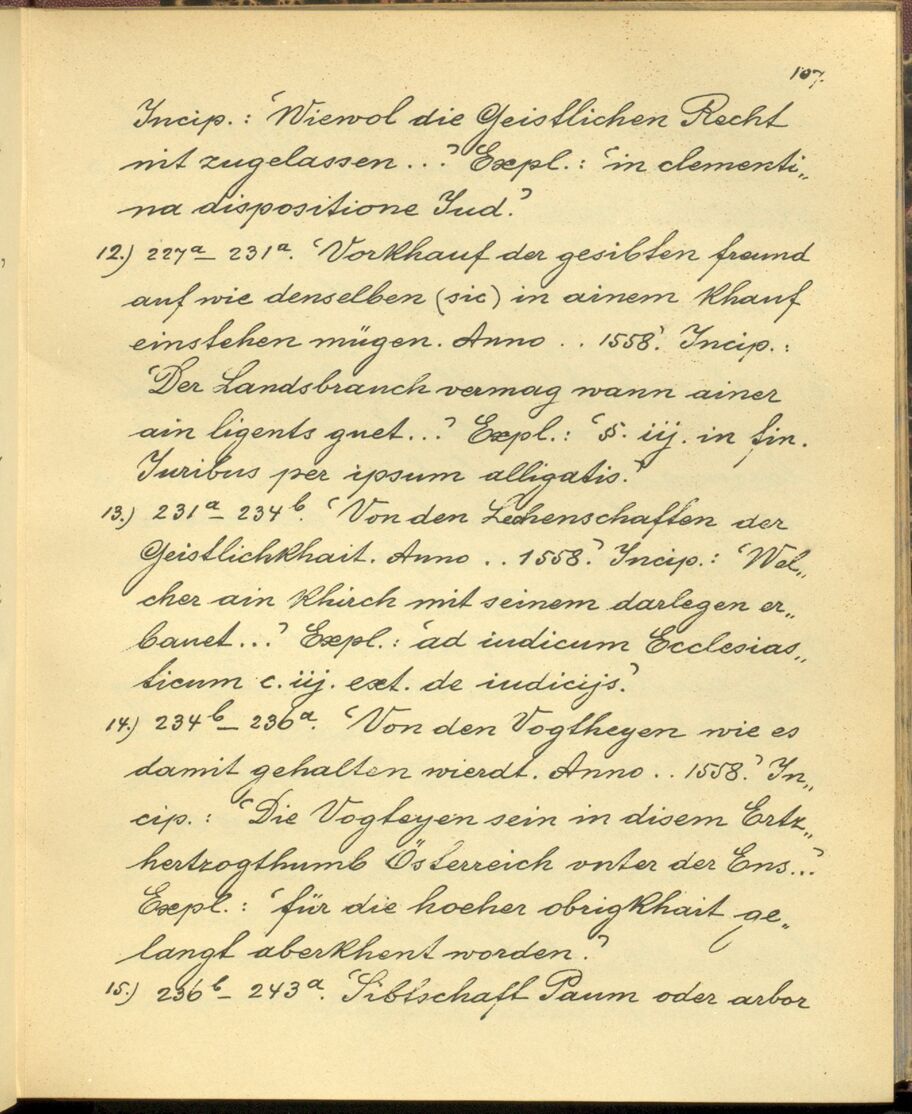 107.
Incip.: 'Wiewol die Geistlichen Recht
nit zugelassen...' Expl.: 'in clementi„
na dispositione Jud.'
12.) 227a – 231a. 'Vorkhauf der gesibten freund
auf wie denselben (sic) in ainem khauf
einstehen mügen. Anno .. 1558.' Incip.:
'Der Landsbrauch vermag wann ainer
ain ligents guet...' Expl.: '§. iij. in fin.
Juribus per ipsum alligatis.'
13.) 231a – 234b. 'Von den Lechenschaften der
Geistlichkhait. Anno .. 1558.' Incip.: 'Wel„
cher ain khirch mit seinem darlegen er„
bauet...' Expl.: 'ad iudicum Ecclesias„
ticum c. iij. ext. de iudicijs.'
14.) 234b – 236a. 'Von den Vogtheyen wie es
damit gehalten wierdt. Anno .. 1558.' In„
cip.: 'Die Vogteyen sein in disem Ertz„
hertzogthumb Österreich vnter der Ens...'
Expl.: 'für die hocher obrigkhait ge„
langt aberkhent worden.'
15.) 236b – 243a. 'Sibtschaft Paum oder arbor